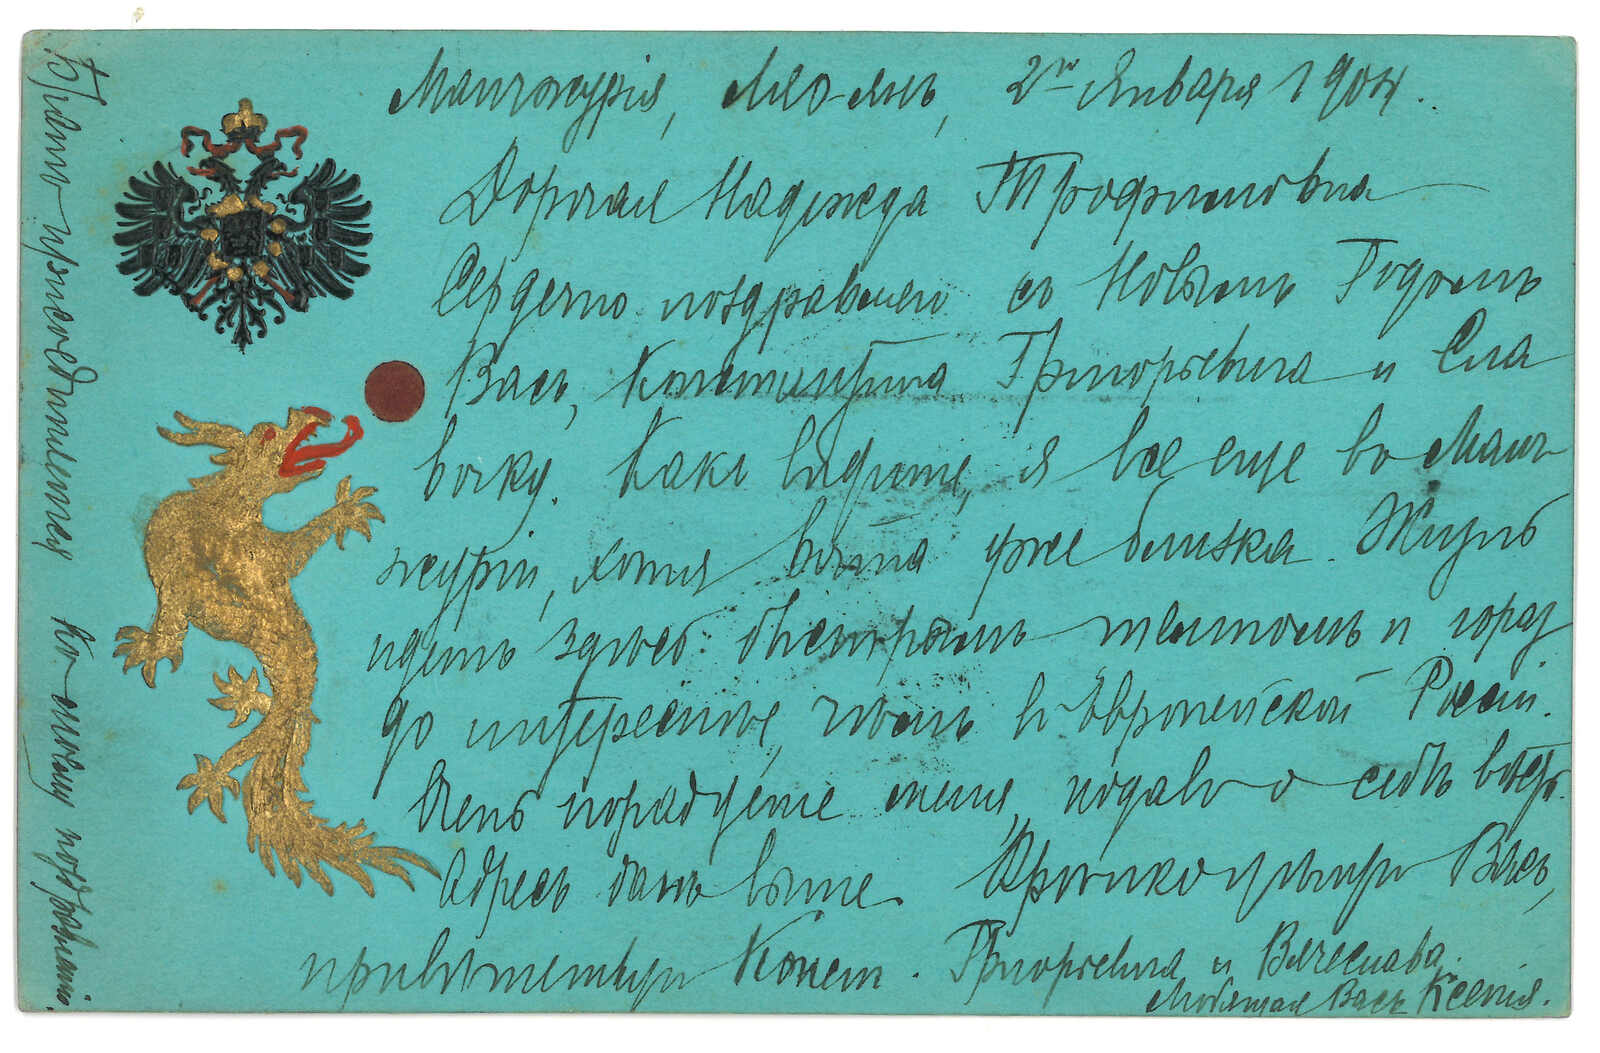 Манчжурія, Ляо-янъ, 2го Января 1904.
Дорогая Надежда Трофимовна
Сердечно поздравляю съ Новымъ Годомъ
Васъ, Константина Григорьевича и Сла
вочку. Какъ видите, я все еще въ Ман
журіи, хотя война уже близка. Жизнь
идетъ здѣсь быстрымъ темпомъ и гораз
до интереснѣе, чѣмъ въ Европейской Россіи.
Очень порадуете меня, подавъ о себѣ вѣсть.
Адресъ данъ выше. Крѣпко цѣлую Васъ,
привѣтствую Конст. Григорьевича и Вячеслава.
Любящая Васъ Ксенія.
Братъ присоединяется Къ моему поздравленію.